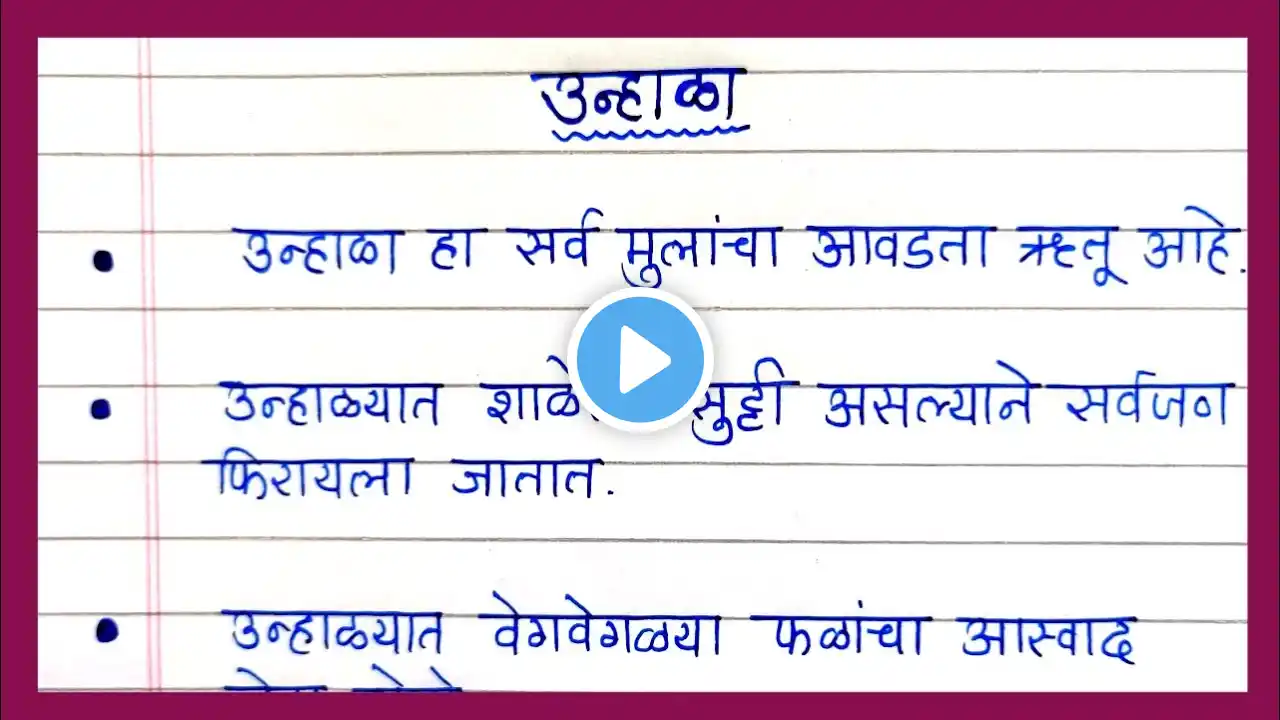 उन्हाळा
• उन्हाळा हा सर्व मुलांचा आवडता ऋतू आहे.
• उन्हाळ्यात सुट्टी असल्याने सर्वजण
फिरायला जातात.
• उन्हाळयात वेगवेगळया फळांचा आस्वाद